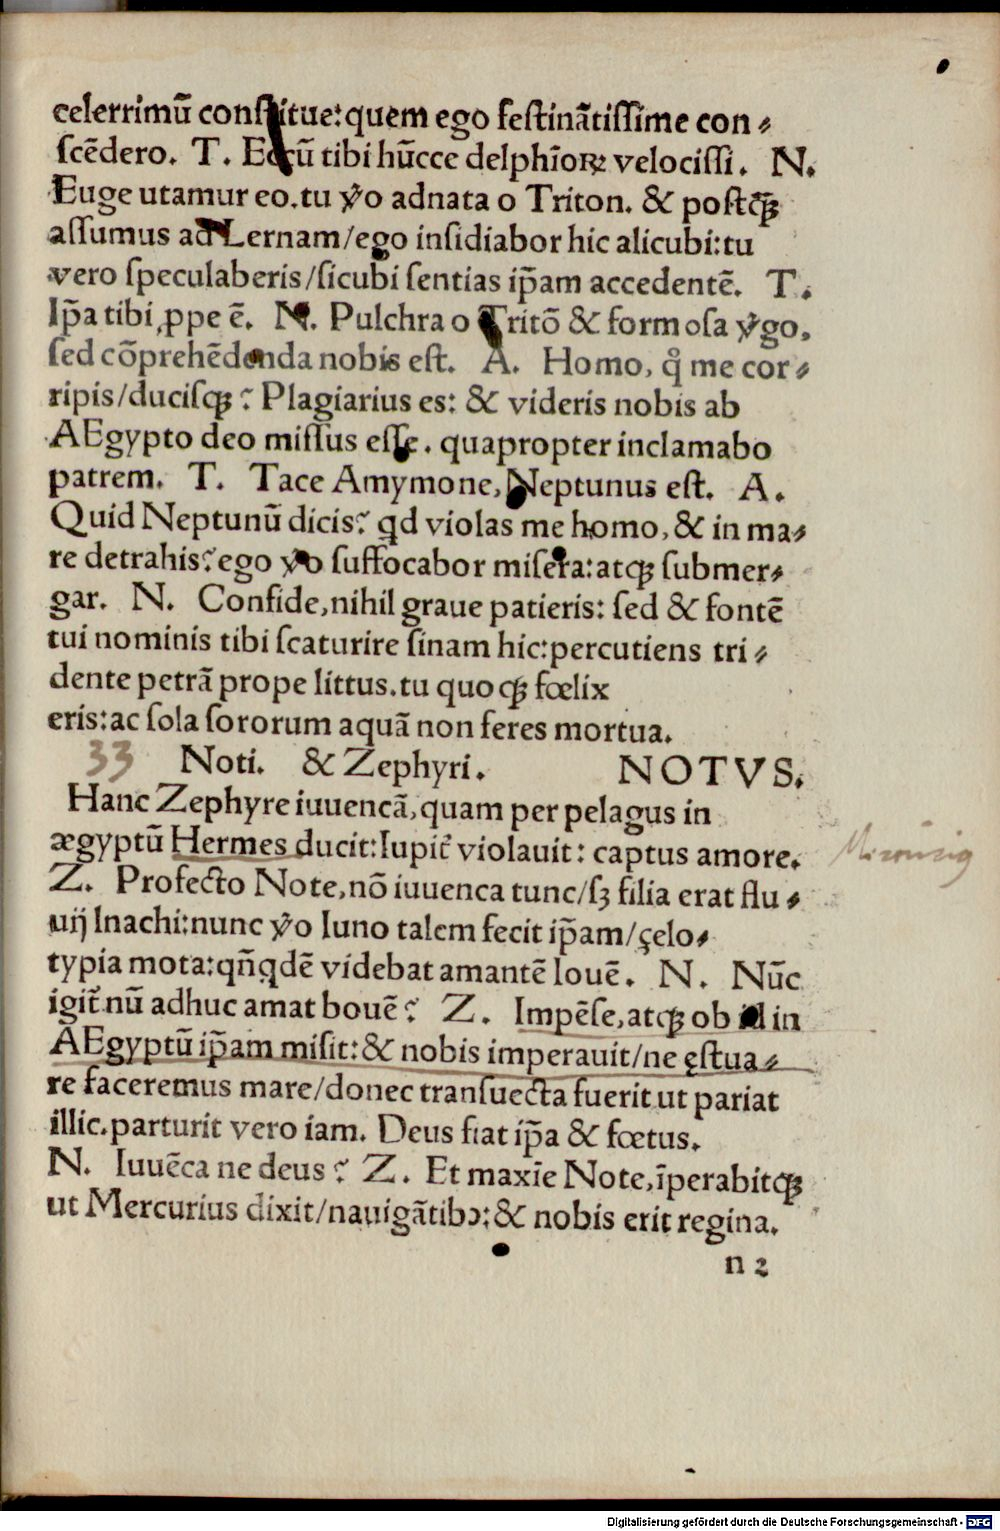 celerrimū constitue: quem ego festinātissime con⸗
scēdero. T. Eccū tibi hūcce delphīoꝝ velocissi. N.
Euge utamur eo. tu ꝟo adnata o Triton. & postꝙ̃
assumus ad Lernam/ego insidiabor hic alicubi: tu
vero speculaberis/sicubi sentias ip̄am accedentē. T.
Ip̄a tibi ꝓpe ē. N. Pulchra o Tritō & formosa ꝟgo,
sed cōprehēdenda nobis est. A. Homo, qͥ me cor⸗
ripis/ducisqꝫ? Plagiarius es: & videris nobis ab
AEgypto deo missus esse. quapropter inclamabo
patrem. T. Tace Amymone, Neptunus est. A.
Quid Neptunū dicis? qd violas me homo, & in ma⸗
re detrahis? ego ꝟo suffocabor misera: atqꝫ submer⸗
gar. N. Confide, nihil graue patieris: sed & fontē
tui nominis tibi scaturire sinam hic: percutiens tri⸗
dente petrā prope littus. tu quoqꝫ fœlix
eris: ac sola sororum aquā non feres mortua.
33 Noti. & Zephyri. NOTVS.
Hanc Zephyre iuuencā, quam per pelagus in
ægyptū Hermes ducit: Iupit̄ violauit: captus amore.
Mercurius
Z. Profecto Note, nō iuuenca tunc/sꝫ filia erat flu⸗
uij Inachi: nunc ꝟo Iuno talem fecit ip̄am/çelo⸗
typia mota: qn̄qdē videbat amantē Iouē. N. Nūc
igit̄ nū adhuc amat bouē? Z. Impēse, atqꝫ ob id in
AEgyptū ip̄am misit: & nobis imperauit/ne ęstua⸗
re faceremus mare/donec transuecta fuerit ut pariat
illic. parturit vero iam. Deus fiat ip̄a & fœtus.
N. Iuuēca ne deus? Z. Et maxīe Note, īperabitqꝫ
ut Mercurius dixit/nauigātibꝰ: & nobis erit regina.
n 2
Digitalisierung gefördert durch die Deutsche Forschungsgemeinschaft - DFG